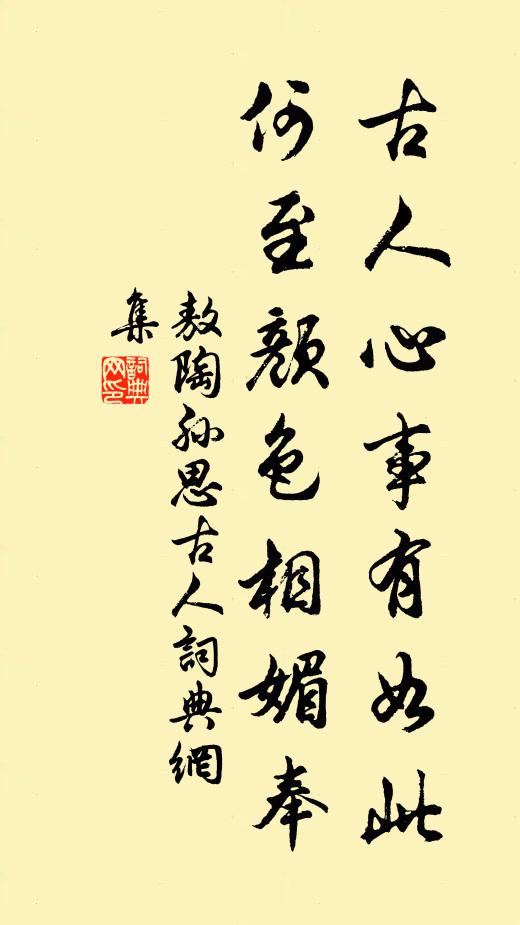 古人心事有如此
何至顏色相媚奉
敖陶孙思古人詞典網
集
詞典
网印